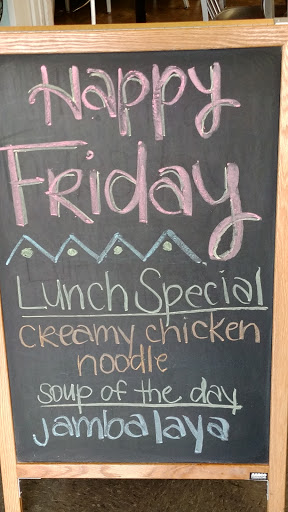 Happy
Friday
Lunch Special
creamy chicken
noodle
soup of the day
jambalaya